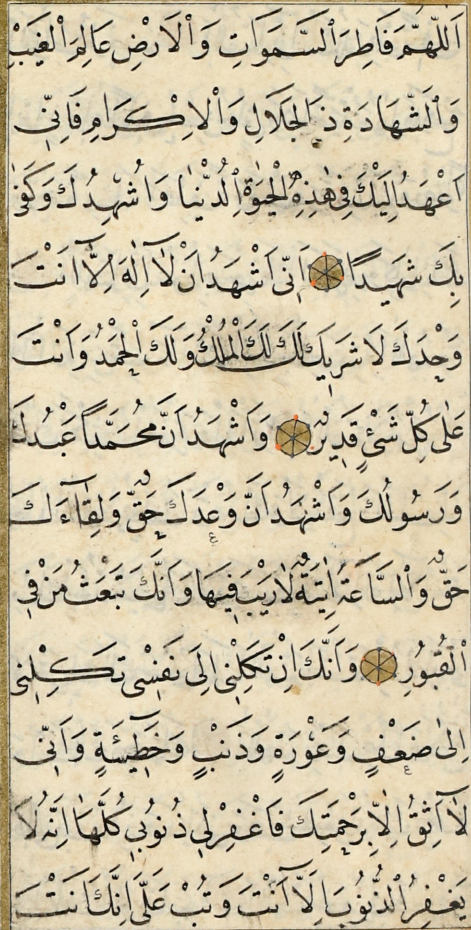 اَللّٰهُمَّ فَاطِرَ السَّمَوَاتِ وَالْاَرْضِ عَالِمَ الْغَيْبِ
وَالشَّهَادَةِ ذَ الْجَلَالِ وَالْاِكْرَامِ فَاِنّ۪ي
اَعْهَدُ اِلَيْكَ ف۪ي هٰذِهِ الْحَيٰوةِ الدُّنْيَا وَاُشْهِدُكَ وَكَفٰى
بِكَ شَه۪يدًا اَنّ۪ي اَشْهَدُ اَنْ لَآ اِلٰهَ اِلَّآ اَنْتَ
وَحْدَكَ لَا شَر۪يكَ لَكَ لَكَ الْمُلْكُ وَلَكَ الْحَمْدُ وَاَنْتَ
عَلٰى كُلِّ شَئٍْ قَد۪يرٌ وَاَشْهَدُ اَنَّ مُحَمَّدًا عَبْدُكَ
وَرَسُولُكَ وَاَشْهَدُ اَنَّ وَعْدَكَ حَقٌّ وَلِقَآءَكَ
حَقٌّ وَالسَّاعَةَ اٰتِيَةٌ لَا رَيْبَ ف۪يهَا وَاَنَّكَ تَبْعَثُ مَنْ فِي
الْقُبُورِ وَاَنَّكَ اِنْ تَكِلْن۪ي اِلٰى نَفْس۪ي تَكِلْن۪ي
اِلٰى ضَعْفٍ وَعَوْرَةٍ وَذَنْبٍ وَخَط۪يئَةٍ وَاَنّ۪ي
لَآ اَثِقُ اِلَّا بِرَحْمَتِكَ فَاغْفِرْ ل۪ي ذُنُوب۪ي كُلَّهَا اِنَّهُ لَا
يَغْفِرُ الذُّنُوبَ اِلَّآ اَنْتَ وَتُبْ عَلَيَّ اِنَّكَ اَنْتَ